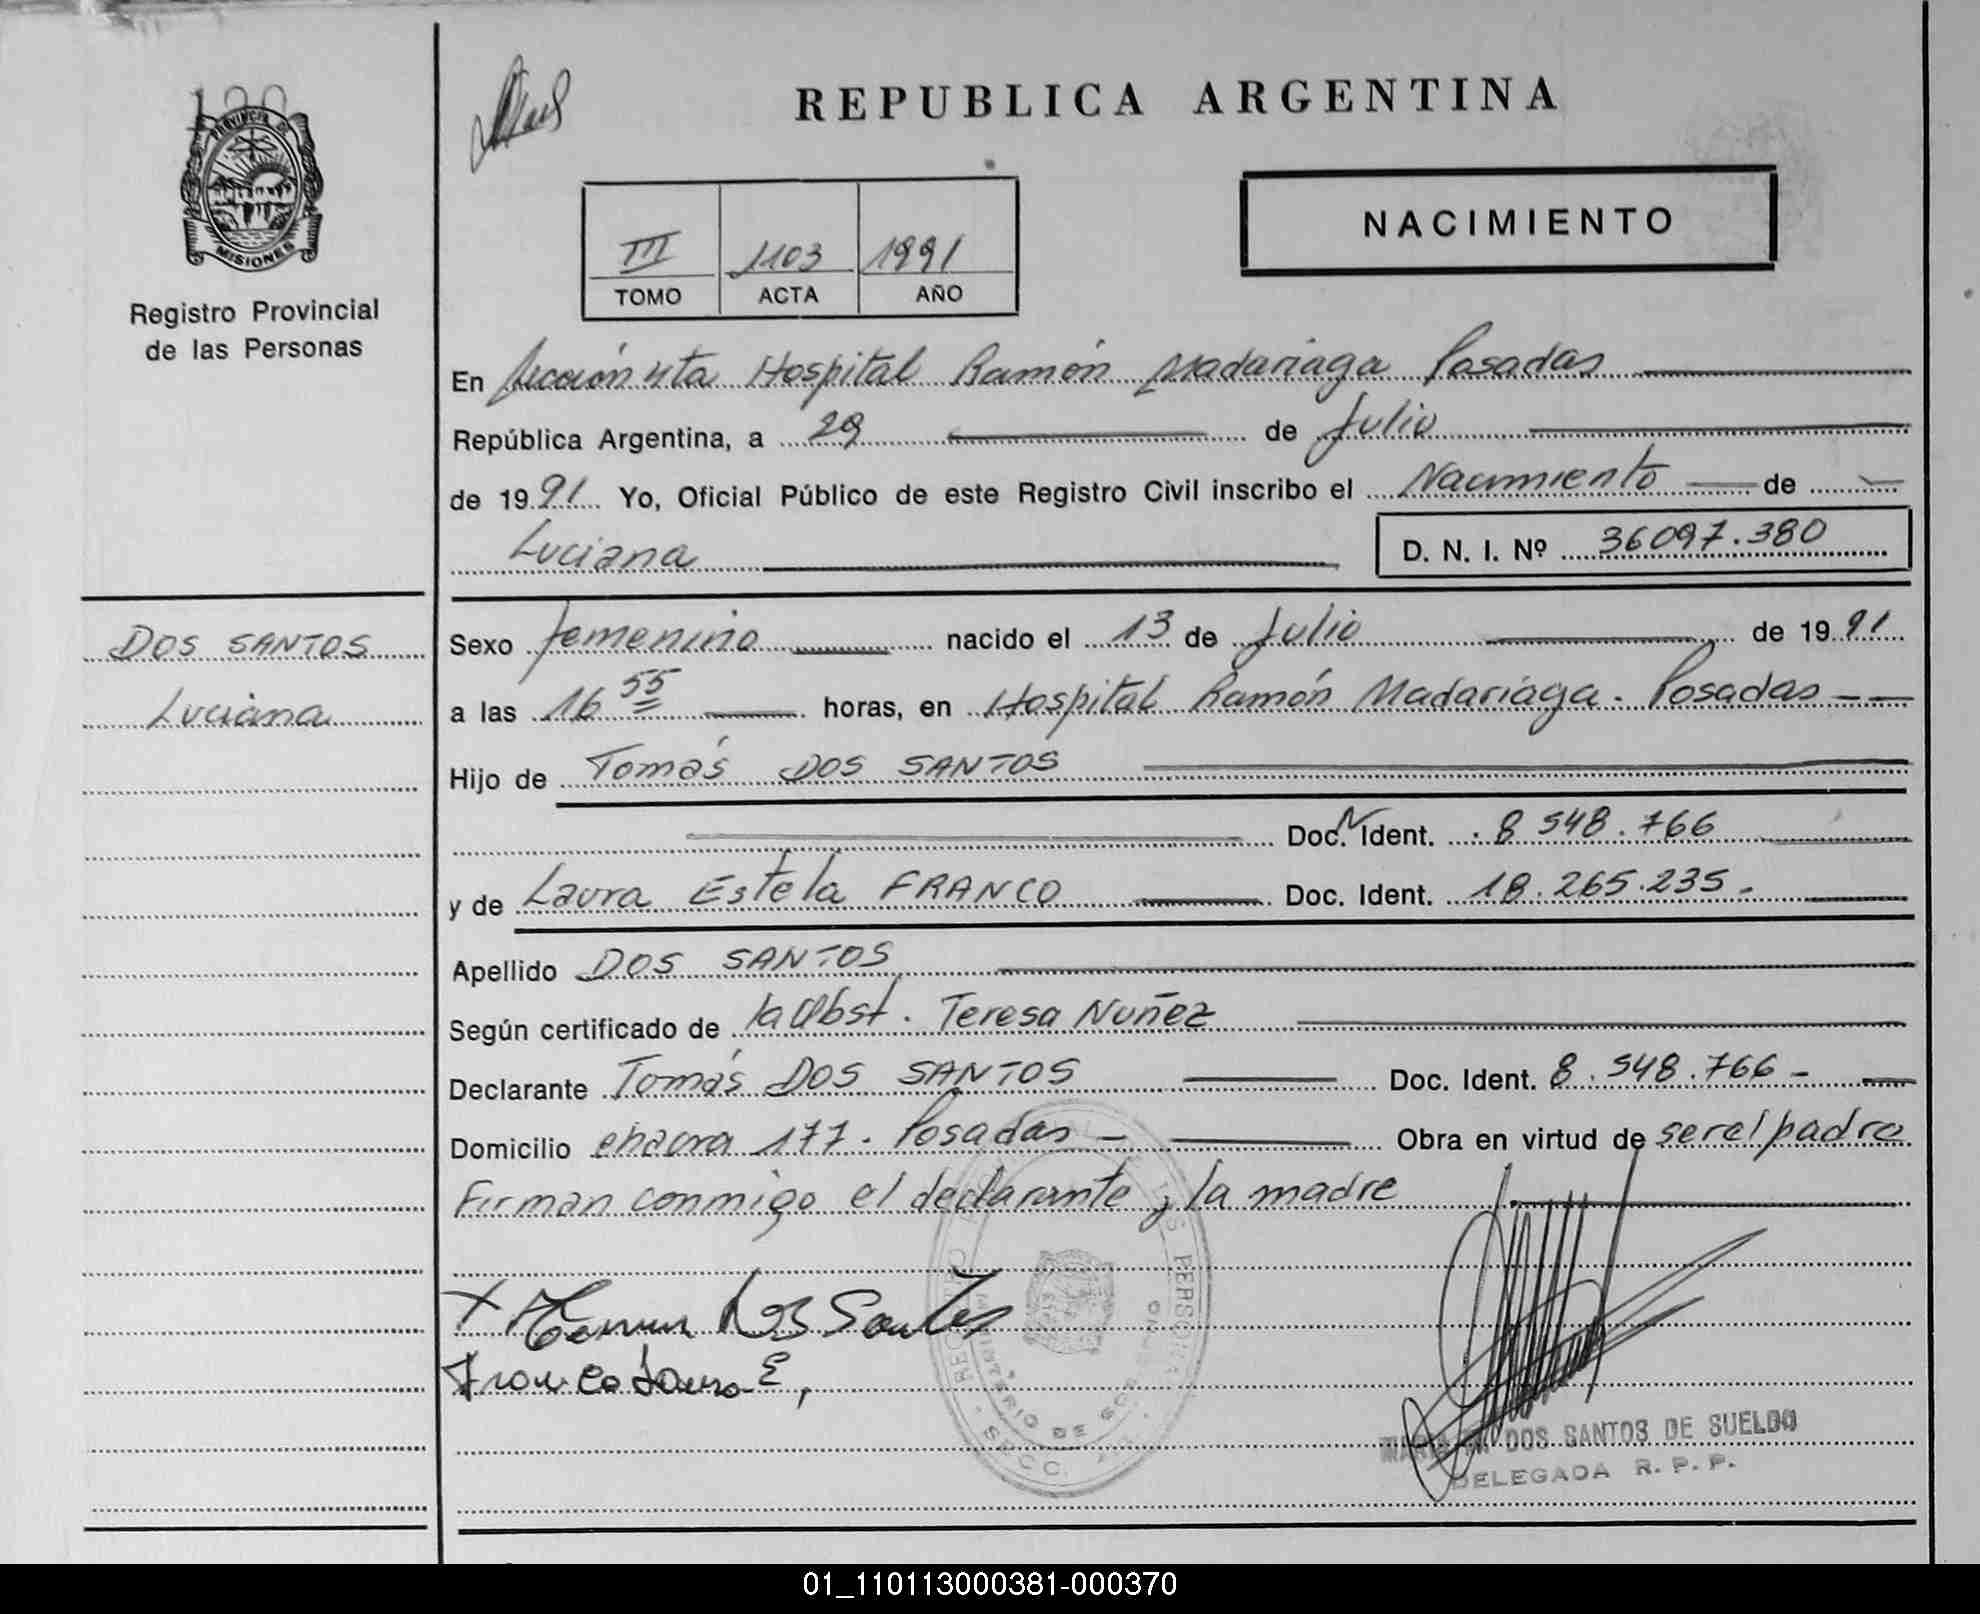 100
PROVINCIA DE
MISIONES
Registro Provincial
de las Personas
DOS SANTOS
Luciana
REPUBLICA ARGENTINA
III 1103 1991
TOMO ACTA AÑO
NACIMIENTO
En Sección 4ta Hospital Ramón Madariaga Posadas
República Argentina, a 29 de Julio
de 1991 Yo, Oficial Público de este Registro Civil inscribo el Nacimiento de
Luciana D. N. I. Nº 36097.380
Sexo femenino nacido el 13 de Julio de 1991
a las 16 55 horas, en Hospital Ramón Madariaga. Posadas
Hijo de Tomás DOS SANTOS
Doc. Ident. 8 548.766
y de Laura Estela FRANCO Doc. Ident. 18.265.235.
Apellido DOS SANTOS
Según certificado de la Obst. Teresa Nuñez
Declarante Tomás DOS SANTOS Doc. Ident. 8.548.766
Domicilio chacra 177. Posadas Obra en virtud de ser el padre
Firman conmigo el declarante y la madre
X Dos Santos
Franco Laura E,
MARIA DOS SANTOS DE SUELDO
DELEGADA R. P. P.
01_110113000381-000370